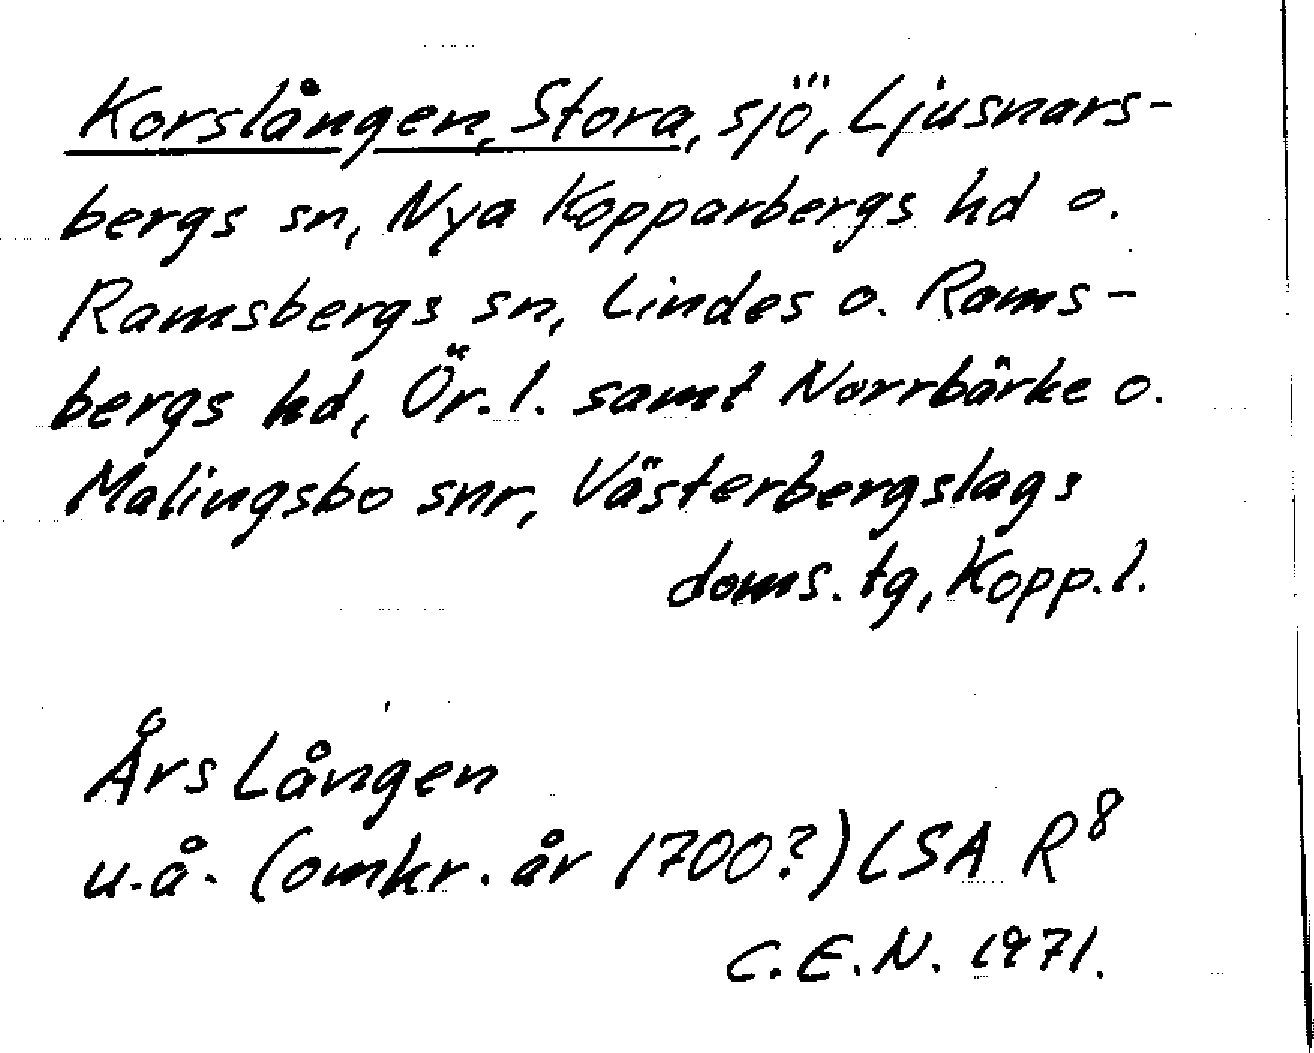 Korslången, Stora, sjö, Ljusnars-
bergs sn, Nya Kopparbergs hd o.
Ramsbergs sn, Lindes o. Rams-
bergs hd, Ör. l. samt Norrbärke o.
Malingsbo snr, Västerbergslags
doms. tg, Kopp. l.
Års Lången
u.å. (omkr. år 1700?) LSA R⁸
C.E.N. 1971.